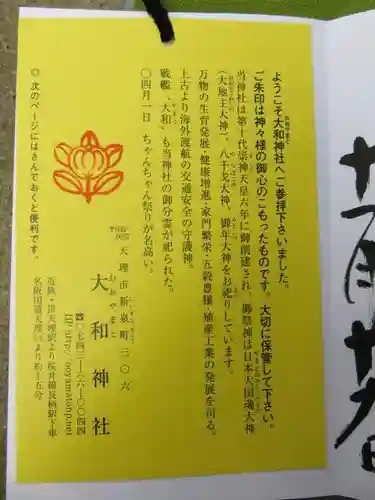 ようこそ大和神社へご参拝下さいました。
ご朱印は神々様の御心のこもったものです。大切に保管して下さい。
当神社は第十代崇神天皇六年に御創建され、御祭神は日本大国魂大神
（大地主大神）、八千戈大神、御年大神をお祀りしています。
万物の生育発展・健康増進・家門繁栄・五穀豊穣・殖産工業の発展を司る。
上古より海外渡航の交通安全の守護神。
戦艦『大和』も当神社の御分霊が祀られた。
〇四月一日 ちゃんちゃん祭りが名高い。
天理市新泉町三〇六
大和神社
☎〇七四三-六六-〇〇四四
HP http://ooyamatohp.net
近鉄・JR天理駅より桜井線長柄駅下車
名阪国道天理ICより約十五分
◎次のページにはさんでおくと便利です。